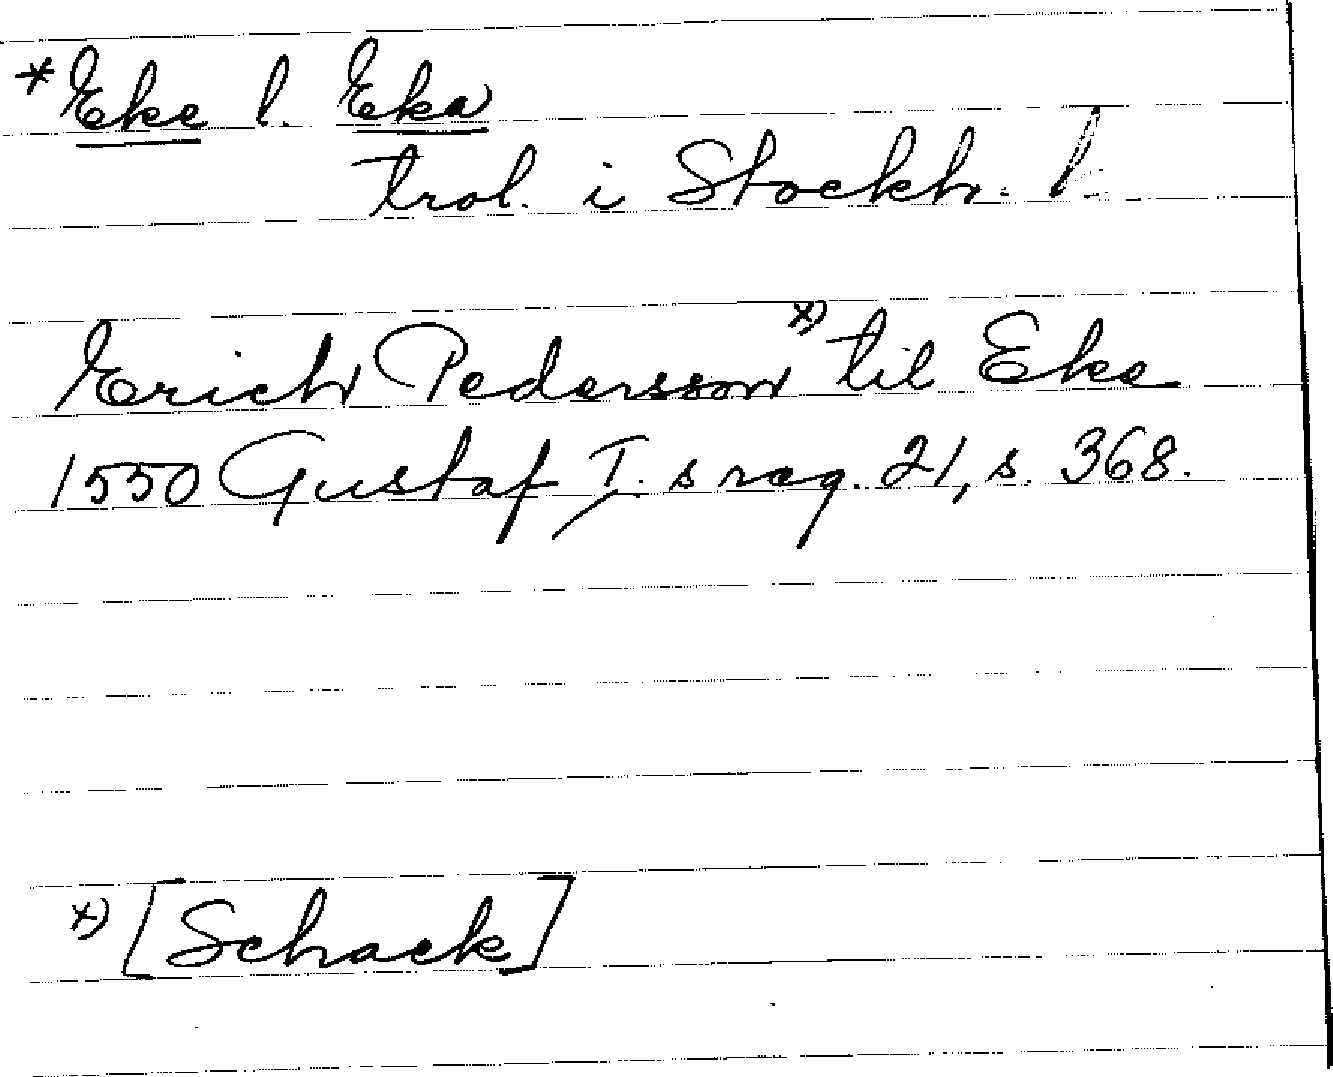 *Eke l. Eka
trol. i Stockh. l.
Erich Pedersson *) til Eke
1550 Gustaf I. s reg. 21, s. 368.
*) [Schack]